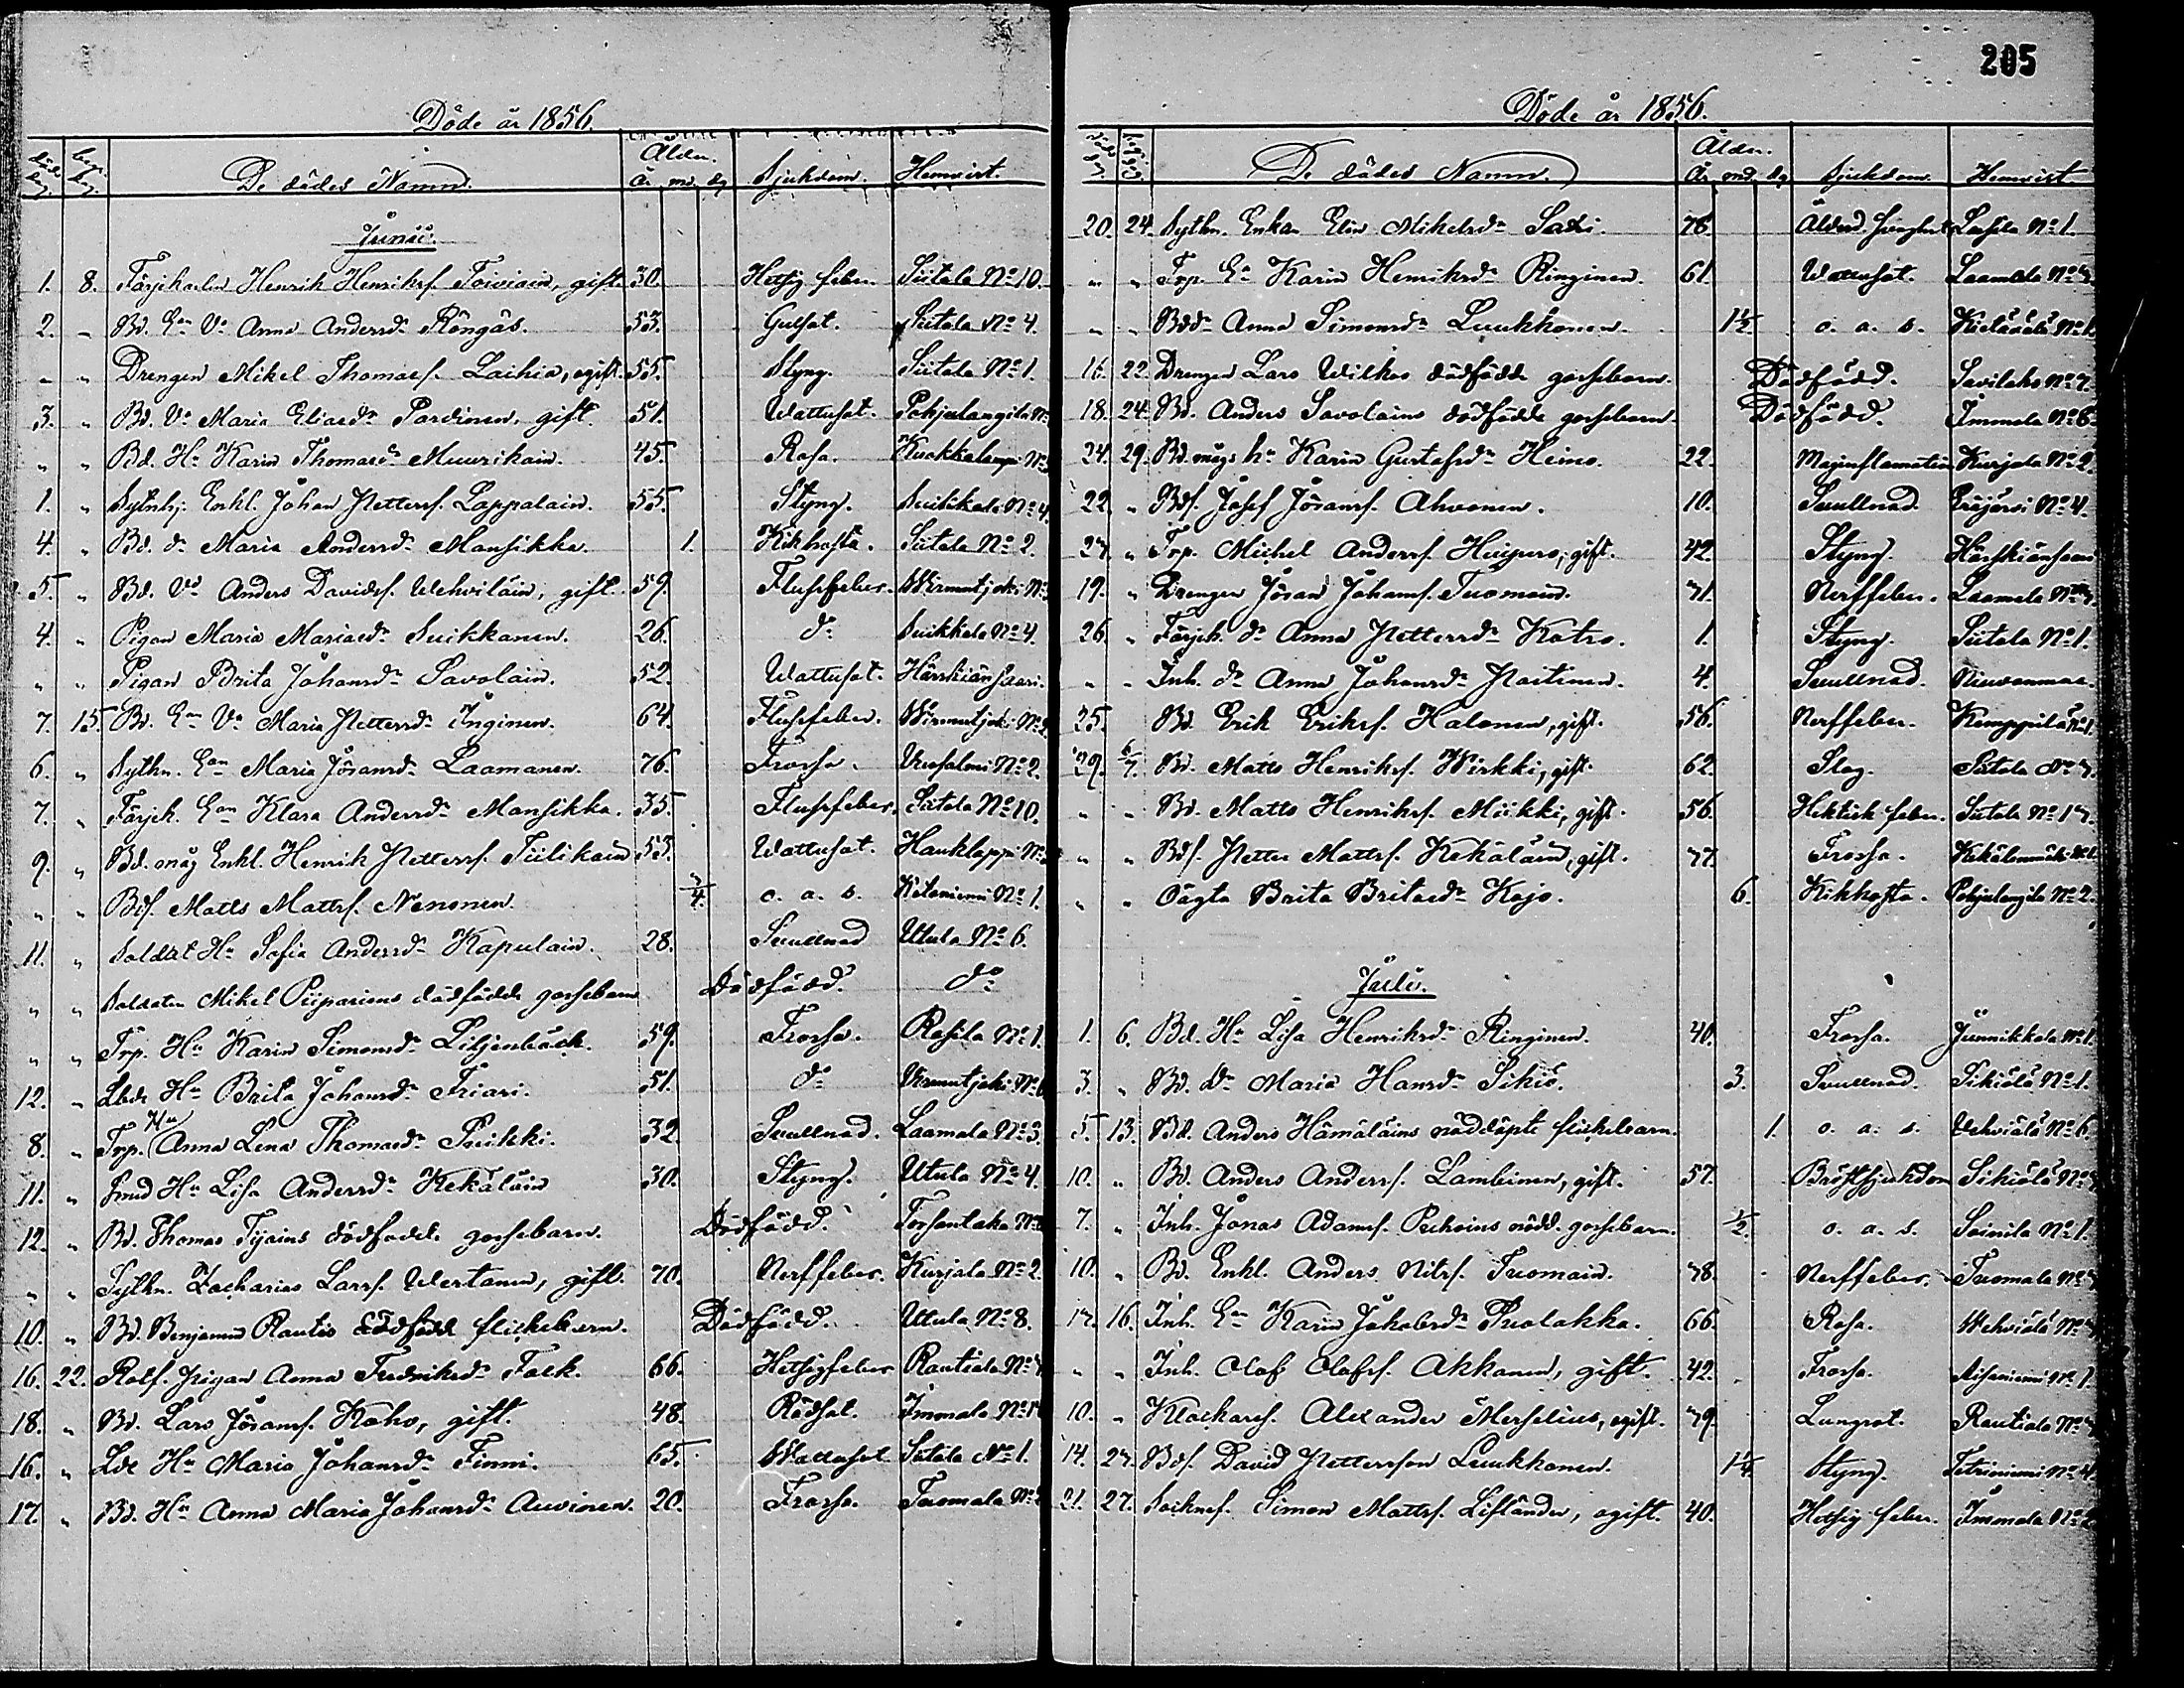 Döde år 1856.
död dag. begr. dag. De dödes Namn. Åldr. År. md. dg Sjukdom. Hemvist.
Junii.
1. 8. Färjkarlen Henrik Henriks. Toiviain, gift. 30. Hetsig feber. Siitala No 10.
2. " Bd. En Va Anna Andersdr Röngäs. 53. Gulsot. Siitala No 4.
" " Drengen Mikel Thomass. Laihia, ogift. 55. Styng. Siitala No 1.
3. " Bd. Va Maria Eliasdr Pardinen, gift. 51. Wattusot. Pohjalangila No
" " Bd. Hu Karin Thomasdr Muurikain. 45. Rosa. Kuokkalampi No
1. " Sytnhj. Enkl. Johan Petters. Lappalain. 55. Styng. Suikkala No 4.
4. " Bd. dr Maria Andersdr Mansikka. 1. Kikhosta. Siitala No 2.
5. " Bd. Vd Anders Davids. Wehviläin, gift. 59. Flussfeber. Wirmutjoki No
4. " Pigan Maria Mariasdr Suikkanen. 26. do Suikkala No 4.
" " Pigan Brita Johansdr Savolain. 52. Wattusot. Härskiänsaari.
7. 15. Bd. En Va Maria Pettersdr Inginen. 64. Flussfeber. Wirmutjoki No 2
6. " Sytn. Ean Maria Jöransdr Laamanen. 76. Frossa. Utusalmi No 2.
7. " Färjk. Ean Klara Andersdr Mansikka. 35. Flussfeber. Siitala No 10.
9. " Bd. måg Enkl. Henrik Petters. Tiilikain 53. Wattusot. Hauklappi No
" " Bds. Matts Matts. Nenonen. 3/4. o. a. s. Ketoniemi No 1.
11. " Soldat Hu Sofia Andersdr Kapulain. 28. Svullnad Utula No 6.
" " Soldaten Mikel Piiparins dödfödde gossebarn Dödfödd. do
" " Trp. Hu Karin Simonsdr Liljenbäck. 59. Frossa. Rasila No 1.
12. " Lbde Hu Brita Johansdr Friari. 51. do Wirmutjoki No
8. " Trp. Hu Anna Lena Thomasdr Puikki. 32. Svullnad. Laamala No 3.
11. " Smed Hu Lisa Andersdr Kekäläin 30. Styng. Utula No 4.
12. " Bd. Thomas Tijains dödfödde gossebarn. Dödfödd. Torsanlaks No
" " Sytn. Zacharias Larss. Wertanen, gift. 70. Nerffeber. Kurjala No 2.
10. " Bd. Benjamin Rautis dödfödde flickebarn. Dödfödd. Utula No 8.
16. 22. Rolf. pigan Anna Fredriksdr Falk. 66. Hetsigfeber Rautiala No
18. " Bd. Lars Jörans. Koho, gift. 48. Rödsot. Immala No 1
16. " Lde Hu Maria Johansdr Finni. 65. Wattusot. Siitala No 1.
17. " Bd. Hu Anna Maria Johansdr Auvinen. 20. Frossa. Tuomala No
205
Döde år 1856.
De dödes Namn. Åldr. År. md. dg Sjukdom. Hemvist.
20. 24. Sytn. Enkan Elin Mikelsdr Saxi. 78. Ålderd. Lassila No 1.
" " Trp. En Karin Henriksdr Ringinen. 61. Wattusot. Laamala No
" " Bddr Anna Simonsdr Luukkonen. 1 1/2. o. a. s. Kiesälä No 1.
16. 22. Drengen Lars Wilkos dödfödde gossebarn. Dödfödd. Savilaks No 7.
18. 24. Bd. Anders Savolains dödfödde gossebarn. Dödfödd. Immala No 6.
24. 29. Bd. mågs hu Karin Gustafsdr Heimo. 22. Maginflamation Kurjala No 2.
22. " Bds. Josef Jörans. Ahvonen. 10. Svullnad. Eräjärvi No 4.
27. " Trp. Michel Anders. Huipuro, gift. 42. Styng. Härskiänsaari
19. " Drengen Jöran Johans. Tuomain. 71. Nerffeber. Laamala No
26. " Färjk. dr Anna Pettersdr Kotro. 1. Styng. Siitala No 1.
" " Inh. dr Anna Johansdr Poutinen. 4. Svullnad. Niuvonmaa.
25. Bd. Erik Eriks. Halonen, gift. 56. Nerffeber. Kemppilä No 1.
29. 6/7. Bd. Matts Henriks. Wirkki, gift. 62. Slag. Siitala No 7.
" " Bd. Matts Henriks. Miikki, gift. 56. Hektisk feber. Siitala No 17.
" " Bds. Petter Matts. Kekäläin, gift. 77. Frossa. Kekälenmäki No 1.
" " Oägta Brita Britasdr Kojo. 6. Kikhosta. Pohjalangila No 2.
Julii.
1. 6. Bd. Hu Lisa Henriksdr Ringinen. 40. Frossa. Junnikkala No 1.
3. " Bd. Dr Maria Hansdr Sikiö. 3. Svullnad. Sikiälä No 1.
5. 13. Bd. Anders Hämäläins nöddöpte flickebarn. 1. o. a. s. Vehviälä No 6.
10. " Bd. Anders Anders. Lambinen, gift. 57. Bröstsjukdom Sikiälä No
7. " Inh. Jonas Adams. Puhoins nödd. gossebarn. 1/2. o. a. s. Soinila No 1.
10. " Bd. Enkl. Anders Nils. Tuomain. 78. Nerffeber. Tuomala No
12. 16. Inh. En Karin Jakobsdr Puolakka. 66. Rosa. Wehviälä No
" " Inh. Olof Olofs. Akkanen, gift. 42. Frossa. Äisäniemi No 1.
10. " Klockares. Alexander Merselius, ogift. 79. Lungsot. Rautiala No
14. 27. Bds. David Petterson Luukkonen. 1 1/4. Styng. Tetriniemi No 4.
21. 27. Sockns. Simon Matts. Lifländer, ogift. 40. Hetsig feber. Immala No 2